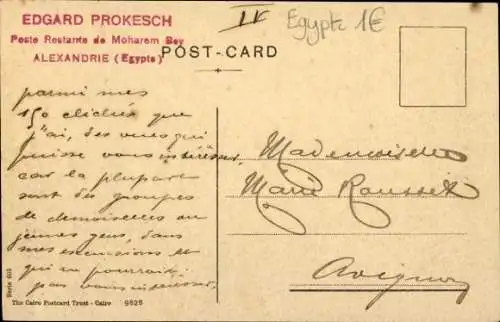 EDGARD PROKESCH
Poste Restante de Moharem Bey
ALEXANDRIE (Egypte)
IV
Egypte 1€
POST-CARD
parmi mes
150 clichés que
j'ai, des vues qui
puisse vous intéresser,
car la plupart
sont des groupes
de demoiselles ou
jeunes gens, dans
mes excursions et
qui ne pourraient
pas vous intéresser.
Mademoiselle
Marie Rousset
Avignon
Serie 603
The Cairo Postcard Trust - Cairo 9626